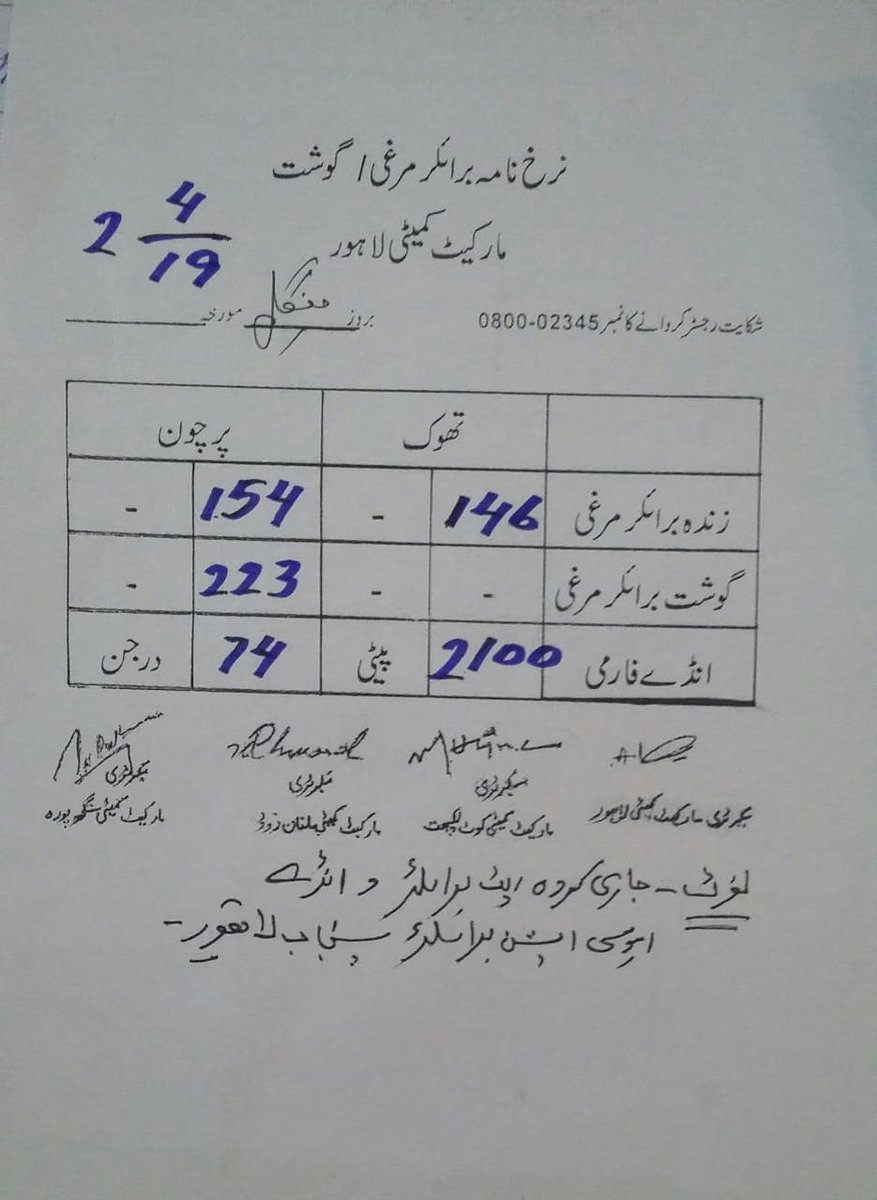 نرخ نامہ برائلر مرغی / گوشت
مارکیٹ کمیٹی لاہور
2 4/19
شکایت رجسٹر کروانے کا نمبر 0800-02345 بروز منگل مورخہ
تھوک پرچون
زندہ برائلر مرغی 146 - 154 -
گوشت برائلر مرغی - - 223 -
انڈے فارمی 2100 پیٹی 74 درجن
سیکرٹری مارکیٹ کمیٹی لاہور
سیکرٹری مارکیٹ کمیٹی کوٹ لکھپت
سیکرٹری مارکیٹ کمیٹی ملتان روڈ
سیکرٹری مارکیٹ کمیٹی سنگھ پورہ
نوٹ - جاری کردہ ریٹ برائلر و انڈے
ایسوسی ایشن برائلر پنجاب لاہور -